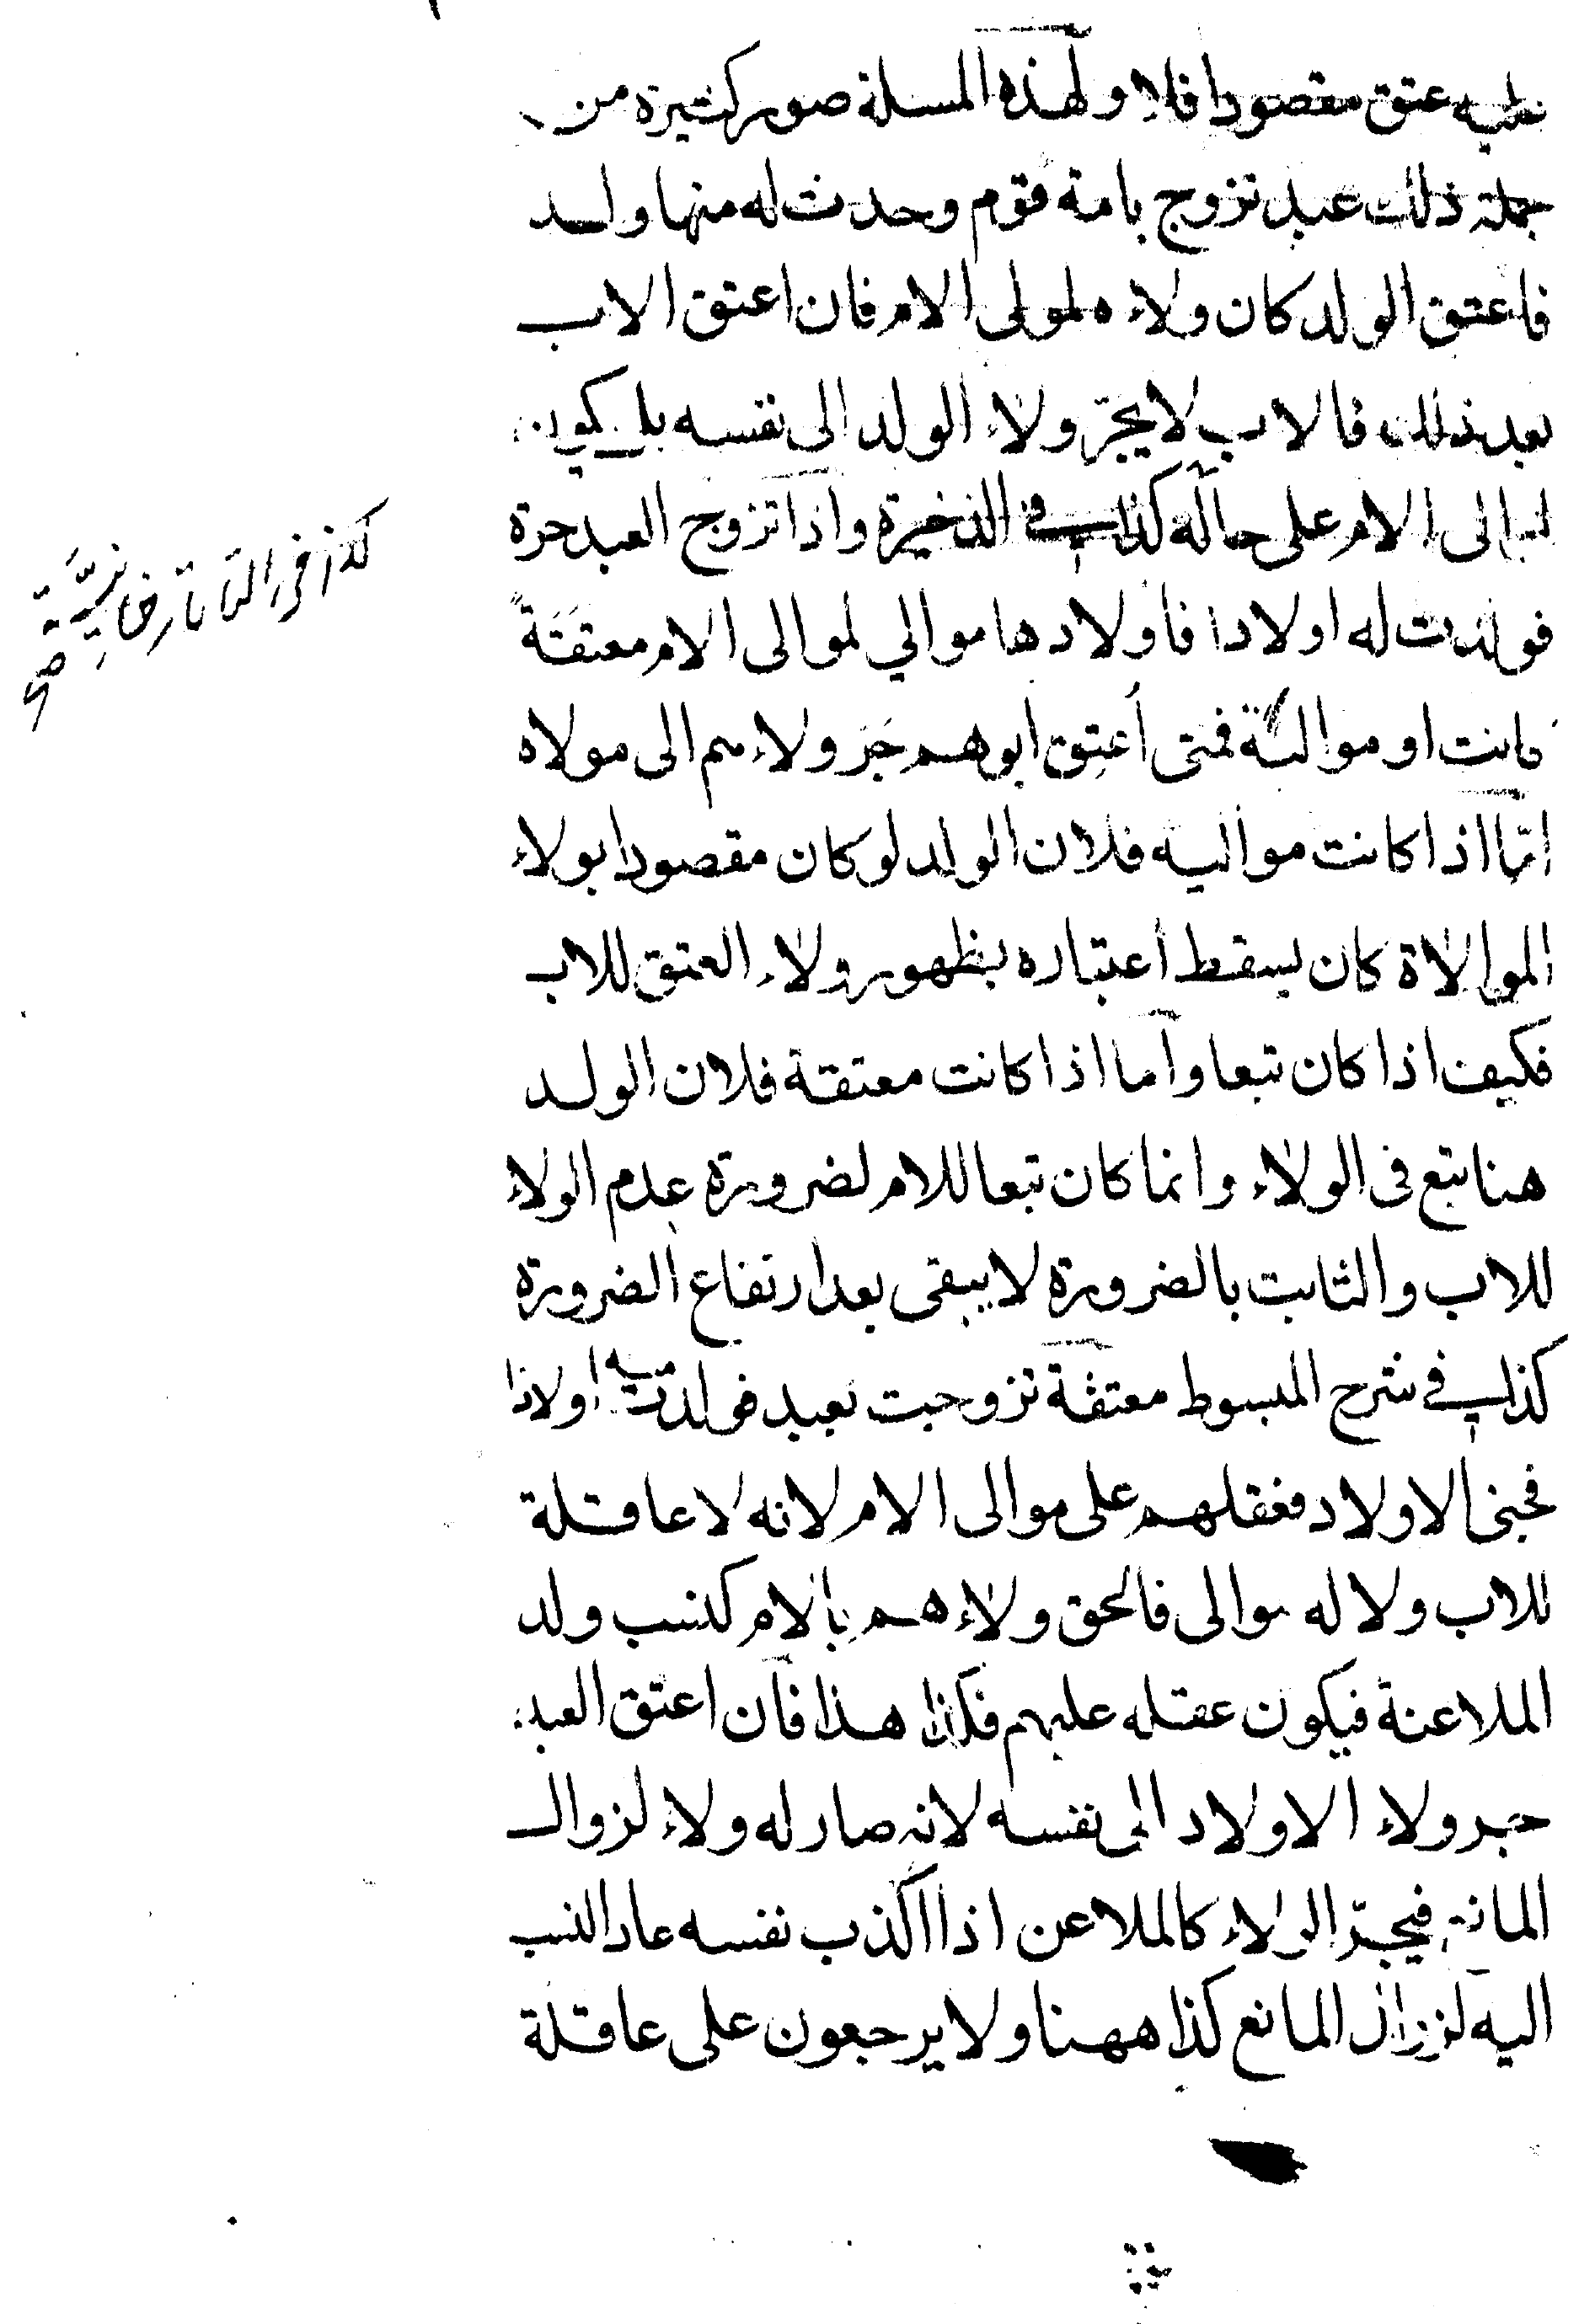 عليه عتق مقصودا فلا ولهذه المسلة صور كثيرة من
جملة ذلك عبد تزوج بامة قوم وحدث له منها ولد
فاعتق الولد كان ولاءه لمولى الام فان اعتق الاب
بعد ذلك فالاب لا يجرّ ولاء الولد الى نفسه بل يكون
لموالى الام على حاله كذا في الذخيرة واذا تزوج العبد حرة
فولدت له اولادا فاولادها موالي لموالى الام معتقَةً
كانت او موالية فمتى أعتِق ابوهم جَرَ ولاءهم الى مولاه
امّا اذا كانت موالية فلان الولد لو كان مقصودا بولاء
الموالاة كان يسقط اعتباره بظهور ولاء العتق للاب
فكيف اذا كان تبعا واما اذا كانت معتقة فلان الولد
هنا تبع فى الولاء وانما كان تبعا للام لضرورة عدم الولاء
للاب والثابت بالضرورة لا يبقى بعد ارتفاع الضرورة
كذا في شرح المبسوط معتقة تزوجت بعبد فولدت منه اولادا
فجنى الاولاد فعقلهم على موالى الام لانه لا عاقلة
للاب ولا له موالى فالحق ولاءهم بالام كنسب ولد
الملاعنة فيكون عقله عليهم فكذا هذا فان اعتق العبد
جر ولاء الاولاد الى نفسه لانه صار له ولاء لزوال
المانع فيجرّ الولاء كالملاعن اذا اكذب نفسه عاد النسب
اليه لزوال المانع كذا ههنا ولا يرجعون على عاقلة
كذا فى التاتارخانيَّة
صح